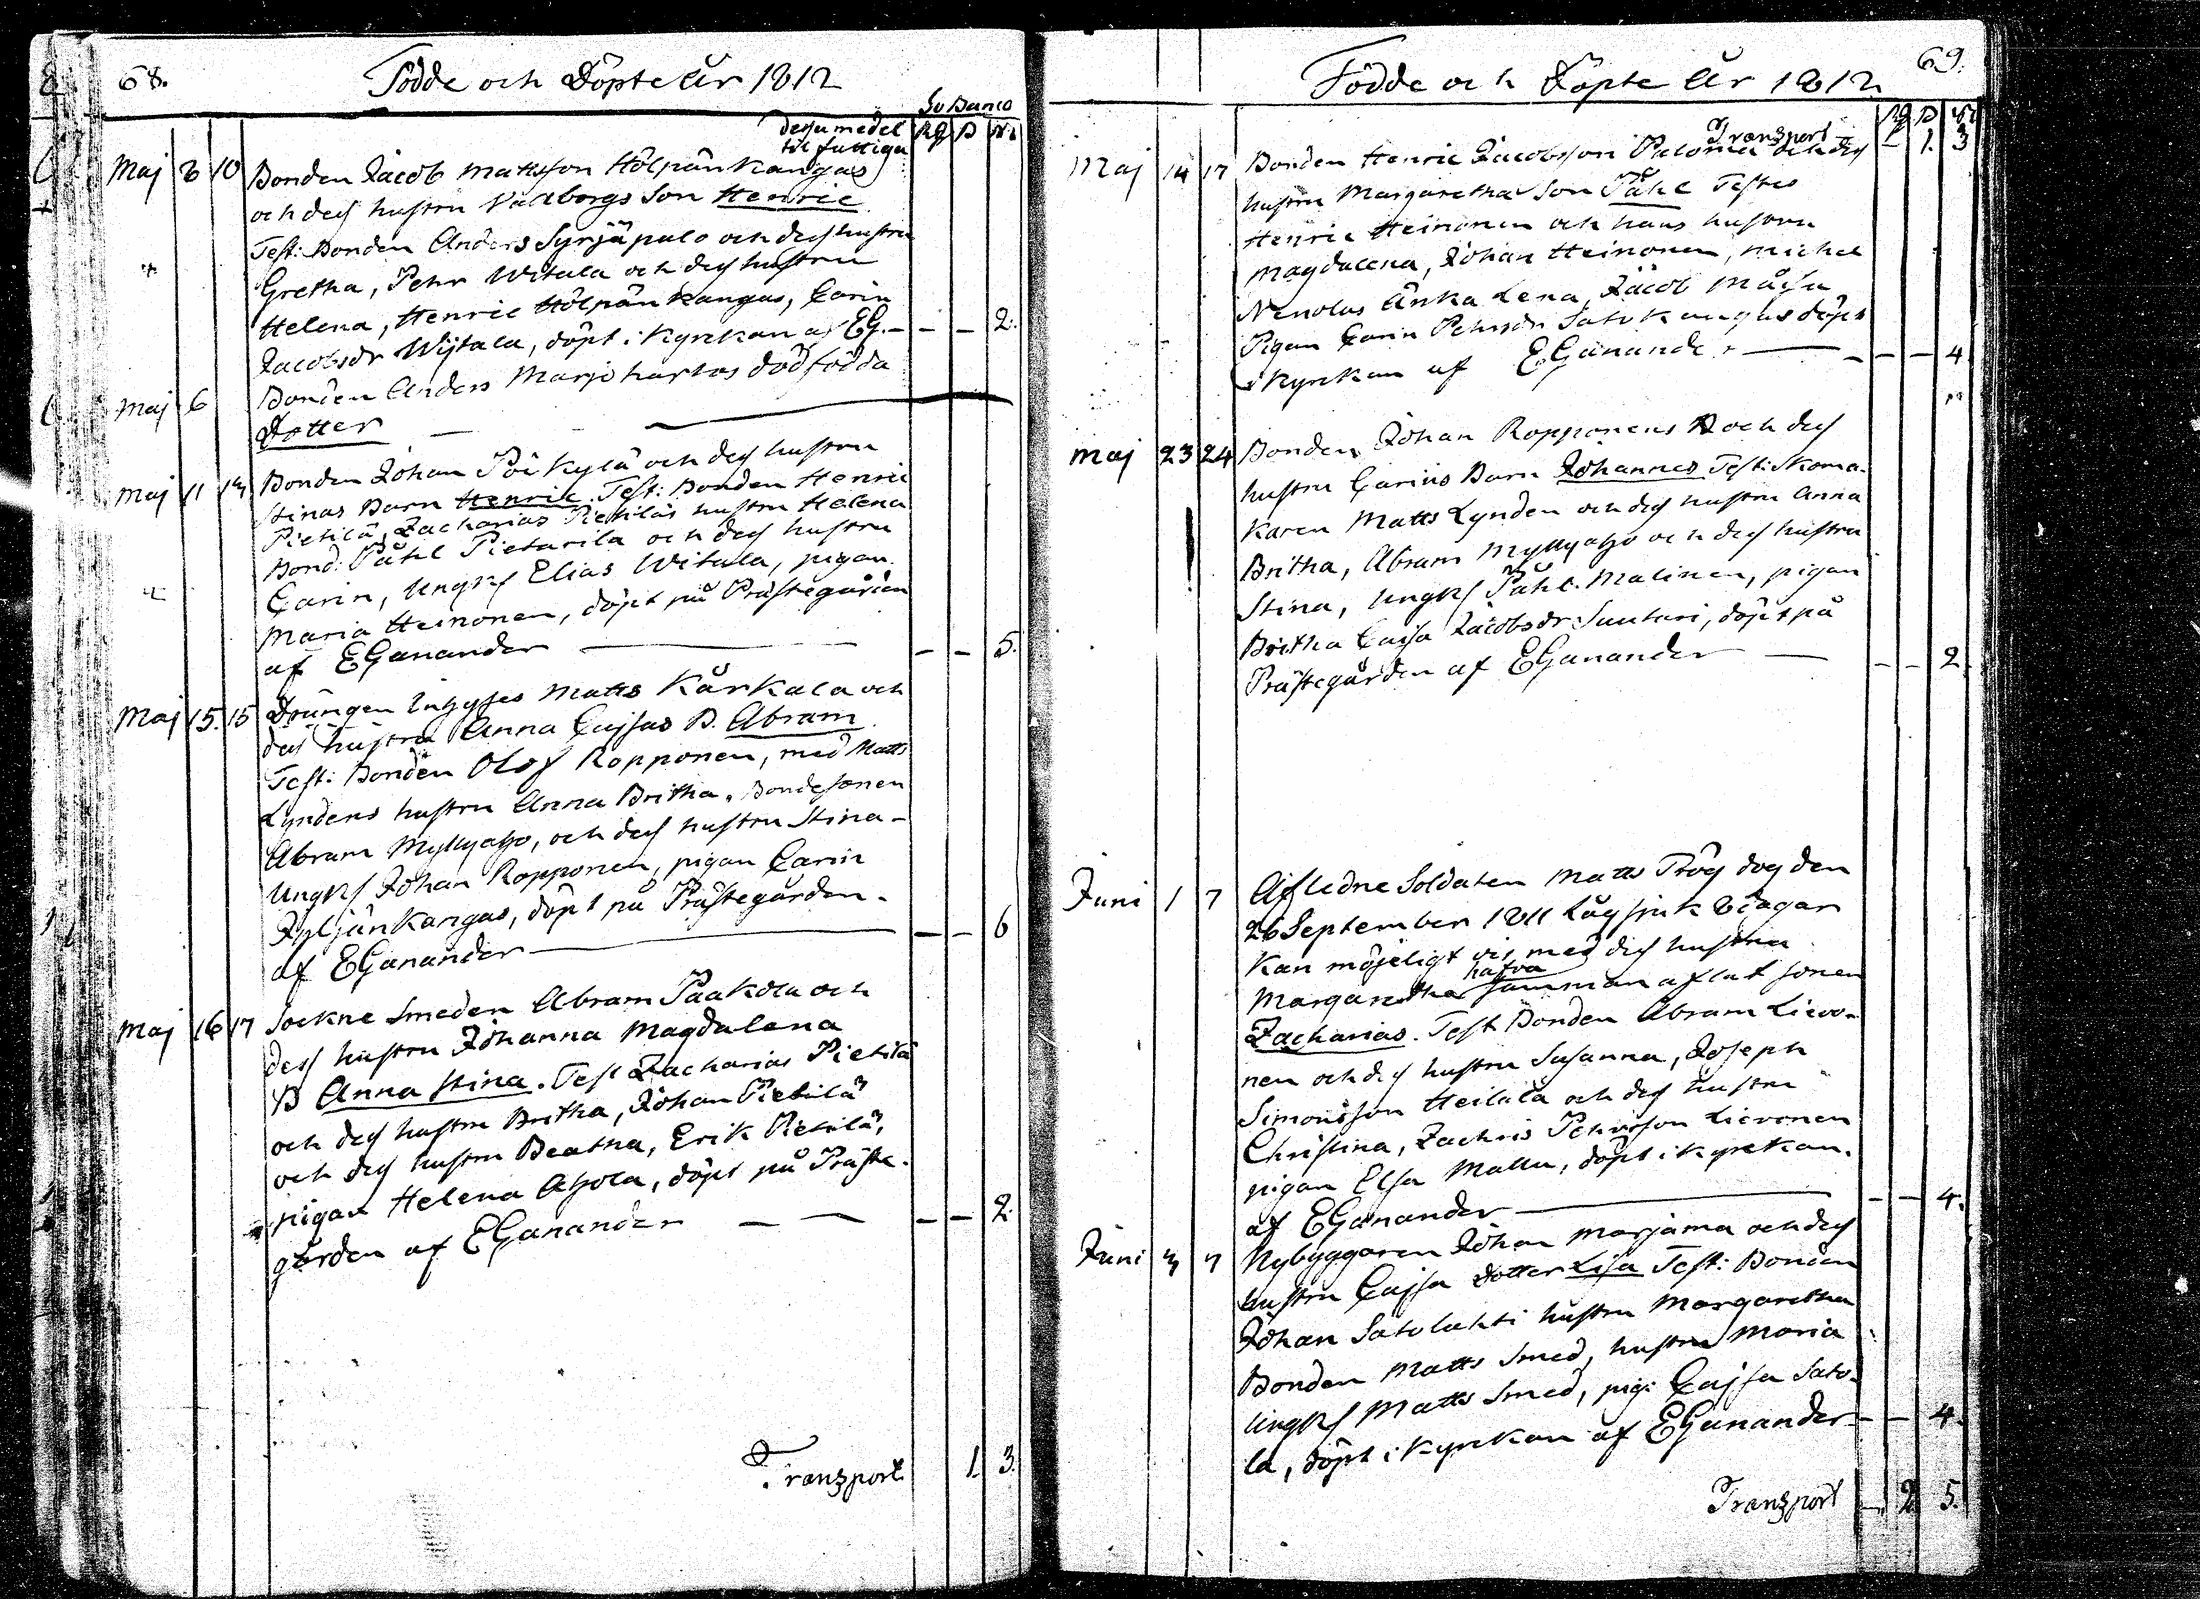 68.
Födde och Döpte År 1812
Sv Banco
dessa medel RG ß rt
til fattiga
Maj 8 10 Bonden Jacob Mattsson Hölpänkangas
och dess hustru Valborgs Son Henric
Test: Bonden Anders Syrjäpalo och dess hustru
Gretha, Pehr Witala och dess hustru
Helena, Henric Hölpänkangas, Carin
Jacobsdr Wijtala, döpt i Kyrkan af EG. - - - 2.
Maj 6 Bonden Anders Marjoharhos dödfödda
Dotter
Maj 11 13 Bonden Johan Pöikylä och dess hustru
Stinas Barn Henric. Test: Bonden Henric
Pietilä, Zacharias Pietiläs hustru Helena
Bond: Påhl Pietarila och dess hustru
Carin, Ungk Elias Witala, pigan
Maria Heinonen, döpt på Prästegården
af EGanander - - 5.
Maj 15. 15 Drängen Inhyses Matts Kärkala och
dess hustru Anna Cajsas B. Abram
Test: Bonden Olof Ropponen, med Matts
Lyndens hustru Anna Britha, Bondesonen
Abram Myllyaho, och dess hustru Stina -
Ungk Johan Ropponen, pigan Carin
Jyljänkangas, döpt på Prästegården.
af EGanander - - 6
Maj 16 17 Sockne Smeden Abram Paakola och
dess hustru Johanna Magdalena
B Anna Stina. Test Zacharias Pietilä
och dess hustru Britha, Johan Pietilä
och dess hustru Beatha, Erik Pietilä,
pigan Helena Ahola, döpt på Präste-
gården af EGanander - - 2.
Transport 1. 3.
69.
Födde och Döpte År 1812
RG ß rt
Transport - 1. 3
Maj 14 17 Bonden Henric Jacobsson Paloma och dess
hustru Margaretha Son Påhl Testes
Henric Heinonen och hans hustru
Magdalena, Johan Heinonen, Michel
Nenolas Änka Lena, Jacob Måsa,
Pigan Carin Pehrsdr Satokangas döpt
i Kyrkan af EGanander - - - 4
Maj 23 24 Bonden Johan Ropponens och dess
hustru Carins Barn Johannes Test: Skoma-
karen Matts Lynden och dess hustru Anna
Britha, Abram Myllyaho och dess hustru
Stina, Ungk Påhl Malinen, pigan
Britha Cajsa Jacobsdr Suutari, döpt på
Prästegården af EGanander - - - 2.
Juni 1 7 Afledne Soldaten Matts Trög dog den
26 September 1811 Låg sjuk 8 dagar
Kan möjeligt vis med dess hustru
hafva
Margaretha samman aflat sonen
Zacharias. Test Bonden Abram Lievo-
nen och dess hustru Susanna, Joseph
Simonsson Heilala och dess hustru
Christina, Zachris Pehrsson Lievonen
pigan Elsa Mallu, döpt i kyrkan.
af EGanander - - 4.
Juni 3 7 Nybyggaren Johan Marjama och dess
hustru Cajsa Dotter Lisa Test: Bonden
Johan Satolahti hustru Margaretha
Bonden Matts Smed, hustru Maria
Ungk Matts Smed, pig: Cajsa Sato-
la, döpt i Kyrkan af EGanander - - 4.
Transport - 2 5.